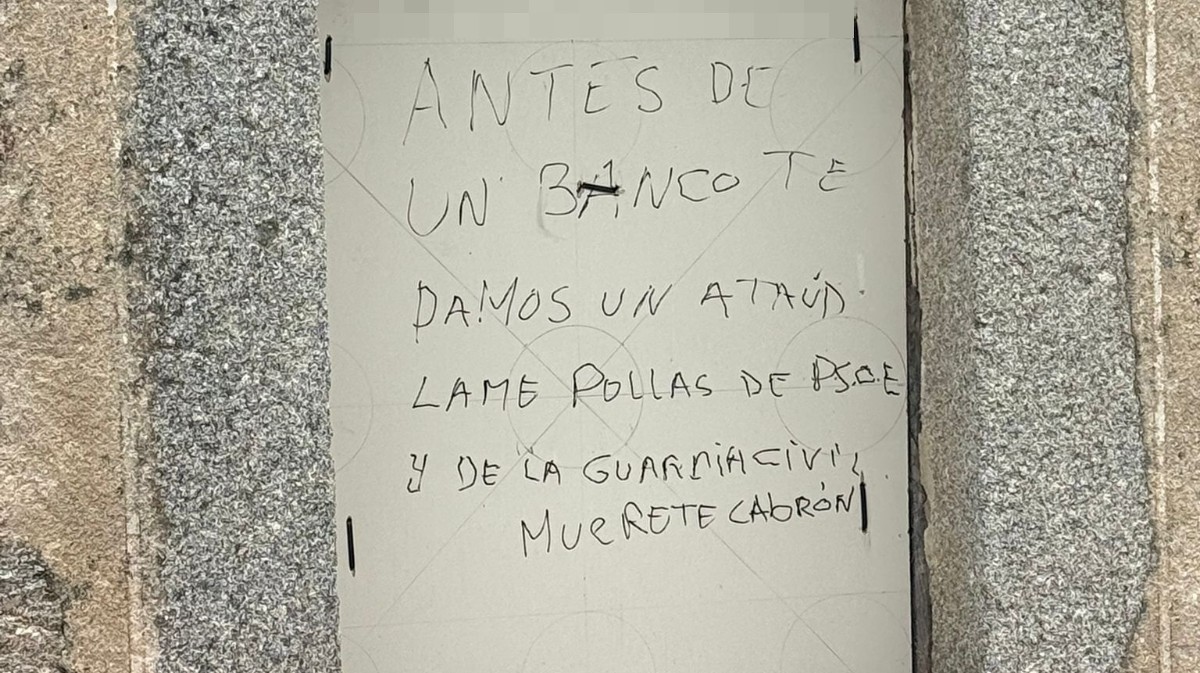 ANTES DE
UN BANCO TE
DAMOS UN ATAÚD!
LAME POLLAS DE PSOE
Y DE LA GUARDIA CIVIL
MUERETE CABRÓN